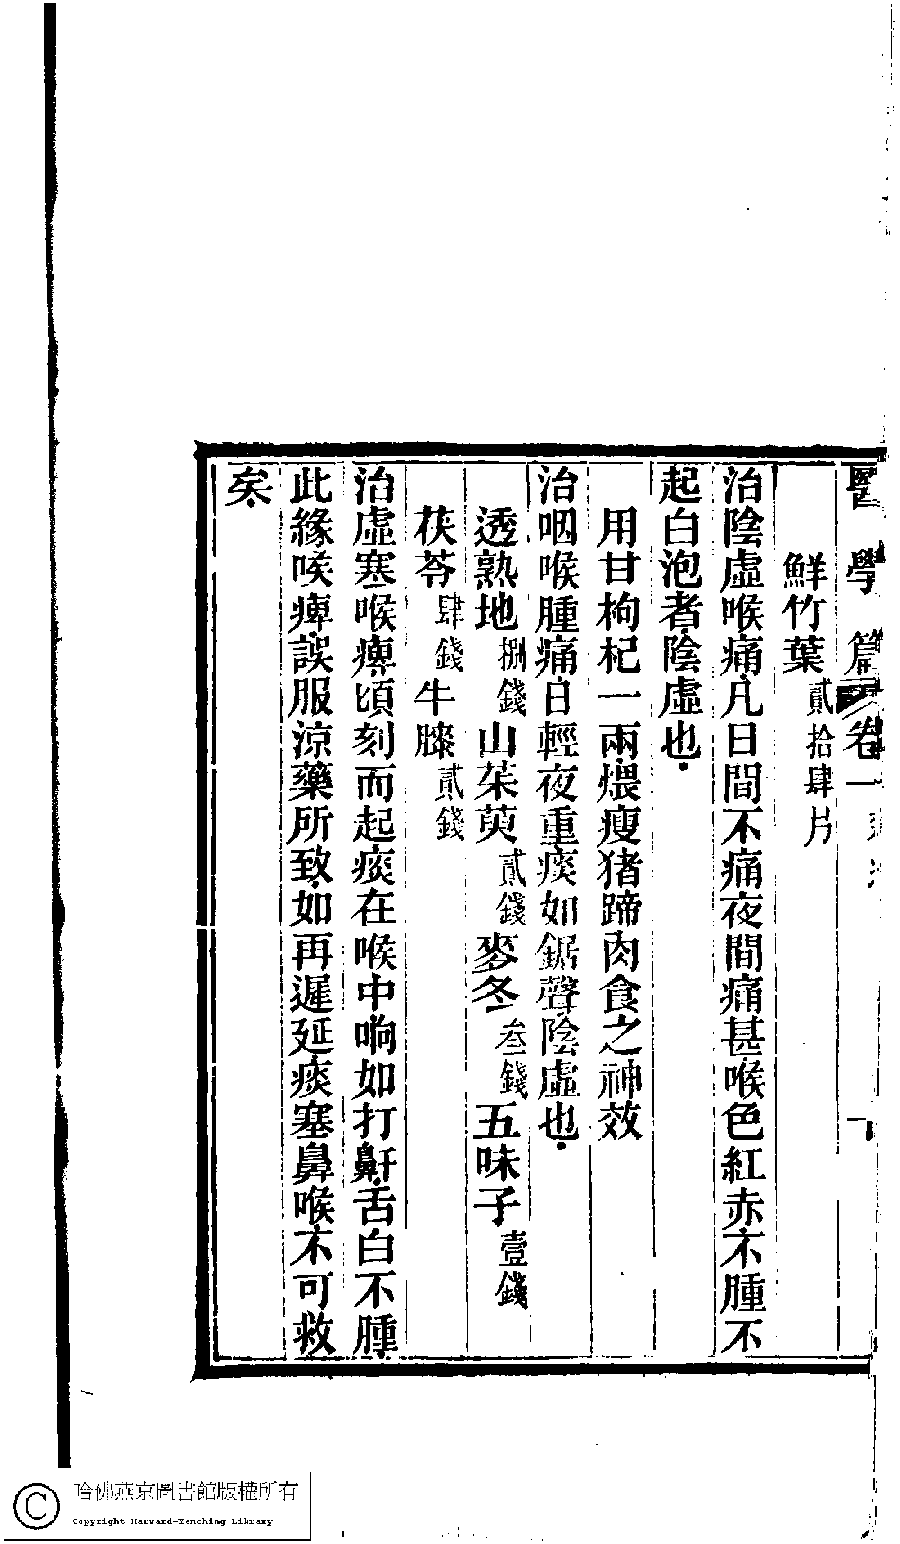 醫學篇 卷一
鮮竹葉貳拾肆片
治陰虛喉痛凡日間不痛夜間痛甚喉色紅赤不腫不
起白泡者陰虛也
用甘枸杞一兩煨瘦猪蹄肉食之神效
治咽喉腫痛日輕夜重痰如鋸聲陰虛也
透熟地捌錢山茱萸貳錢麥冬叁錢五味子壹錢
茯苓肆錢牛膝貳錢
治虛寒喉痺頃刻而起痰在喉中响如打鼾舌白不腫
此緣喉痺誤服涼藥所致如再遲延痰塞鼻喉不可救
矣
哈佛燕京圖書館版權所有
Copyright Harvard-Yenching Library